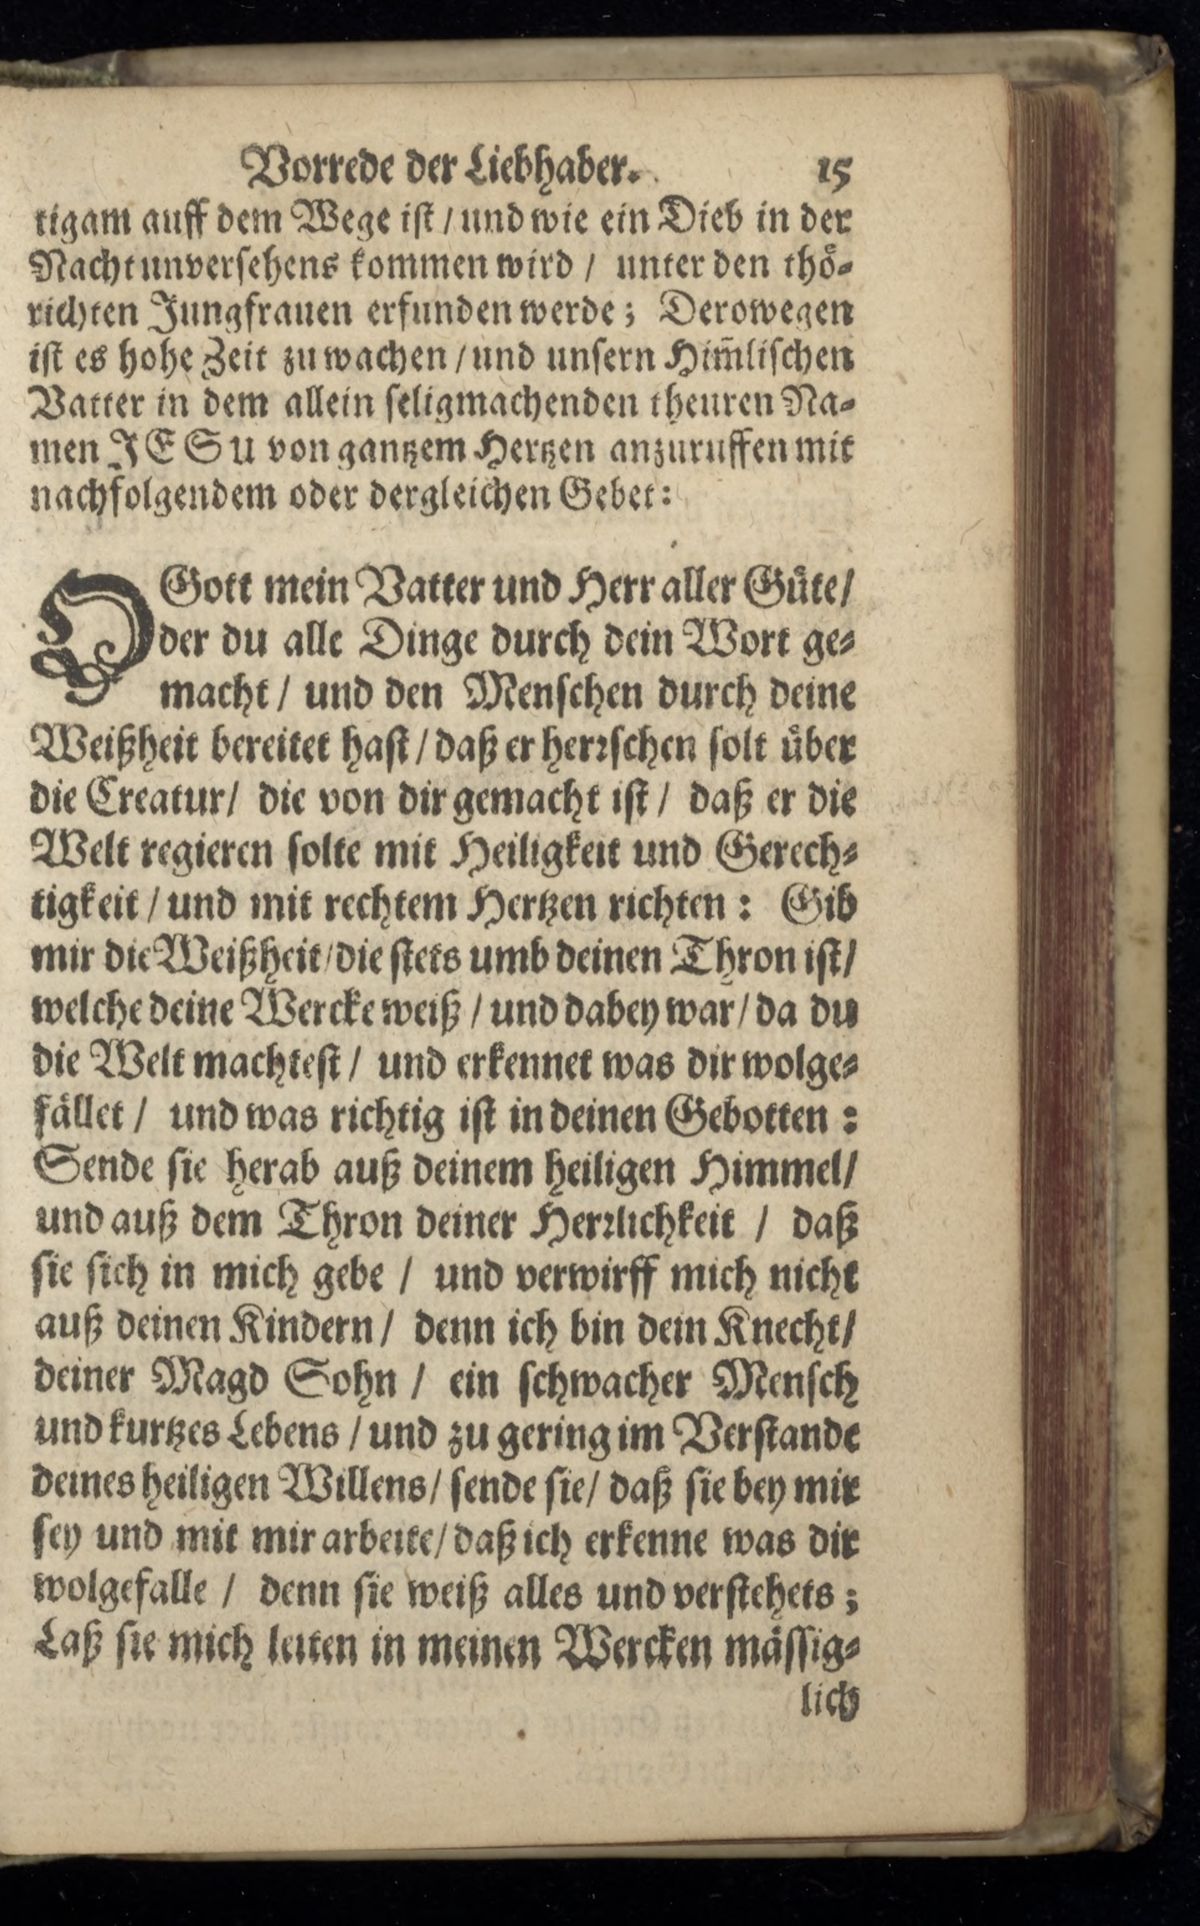 Vorrede der Liebhaber. 15
tigam auff dem Wege ist / und wie ein Dieb in der
Nacht unversehens kommen wird / unter den thö-
richten Jungfrauen erfunden werde; Derowegen
ist es hohe Zeit zu wachen / und unsern Him̃lischen
Vatter in dem allein seligmachenden theuren Na-
men JESU von gantzem Hertzen anzuruffen mit
nachfolgendem oder dergleichen Gebet:
O Gott mein Vatter und Herr aller Güte/
der du alle Dinge durch dein Wort ge-
macht / und den Menschen durch deine
Weißheit bereitet hast / daß er herrschen solt über
die Creatur/ die von dir gemacht ist / daß er die
Welt regieren solte mit Heiligkeit und Gerech-
tigkeit / und mit rechtem Hertzen richten : Gib
mir die Weißheit/die stets umb deinen Thron ist/
welche deine Wercke weiß / und dabey war/ da du
die Welt machtest / und erkennet was dir wolge-
fället / und was richtig ist in deinen Gebotten :
Sende sie herab auß deinem heiligen Himmel/
und auß dem Thron deiner Herrlichkeit / daß
sie sich in mich gebe / und verwirff mich nicht
auß deinen Kindern / denn ich bin dein Knecht/
deiner Magd Sohn / ein schwacher Mensch
und kurtzes Lebens / und zu gering im Verstande
deines heiligen Willens/ sende sie/ daß sie bey mir
sey und mit mir arbeite/ daß ich erkenne was dir
wolgefalle / denn sie weiß alles und verstehets ;
Laß sie mich leiten in meinen Wercken mässig-
lich